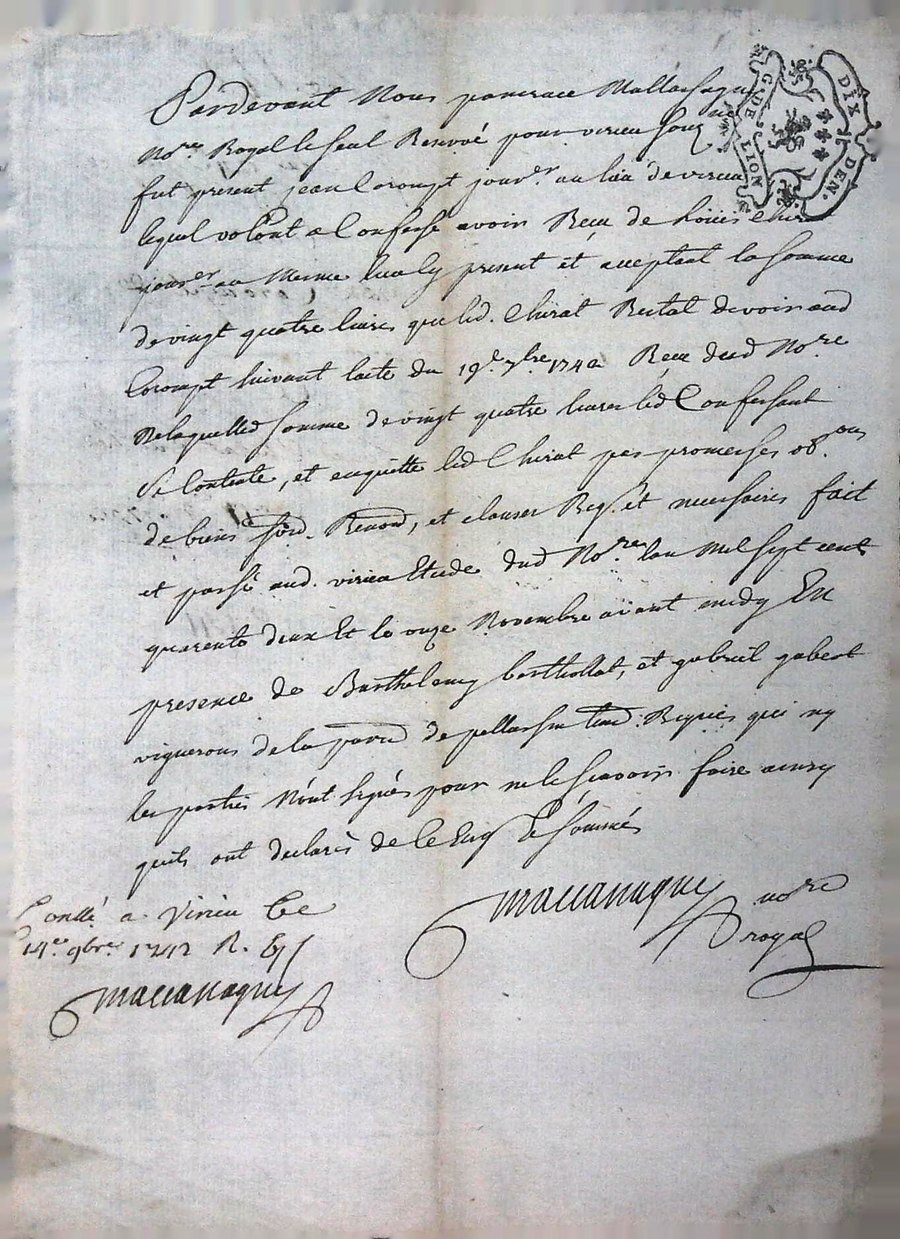 Pardevant Nous pancrace
No.re Royal le seul Reservé pour virieu souz.né
fut present jean Corompt jour.er au lieu de virieu
lequel volont a Confessé avoir Receu de Louis Chirat
jour.er au Mesme lieu Cy present et acceptant la somme
de vingt quatre livres que led. Chirat Restat devoir aud
Corompt suivant lacte du 19.e 7bre 1740 Receu dud No.re
De laquelled somme de vingt quatre livres led Confessant
Se Contente, et enquitte led Chirat par promesses ob.ons
de biens Renond, et clauses Req. et necessaires fait
et passé aud. virieu Etude dud No.re lan Mil sept cent
quarente deux Et le onze Novembre avant midy En
presence de Barthelemy berthollat, et gabriel gabert
vignerons de la parr.e de pellassin Requis qui ny
les parties N'ont signés pour ne le scavoir faire ainsy
quils ont declarés de Ce Enq Et sommés
no.re
royal
Conllé a Virieu Ce
14.e 9bre 1742 R.